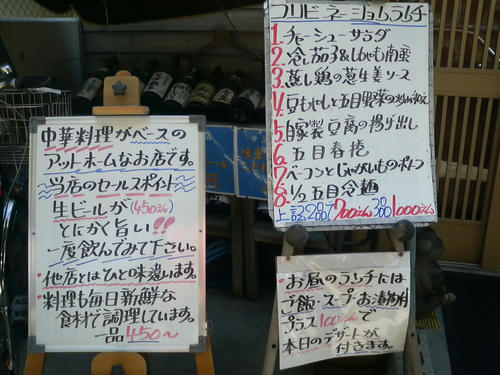 中華料理がベースの
アットホームなお店です。
当店のセールスポイント
生ビールが(450えん)
とにかく旨い!!
一度飲んでみて下さい。
・他店とはひと味違います。
・料理も毎日新鮮な
食材で調理しています。
一品450〜
コンビネーションランチ
1.チャーシューサラダ
2.冷し茄子&ししゃも南蛮
3.蒸し鶏の葱生姜ソース
4.豆もやしと五目野菜の
5.自家製豆腐の揚げ出し
6.五目春捲
7.ベーコンとじゃがいものポトフ
8.1/2五目冷麺
上記2品で700えん 3品1000えん
・お昼のランチには
ご飯・スープ・お漬物付
プラス100えんで
本日のデザートが
付きます。